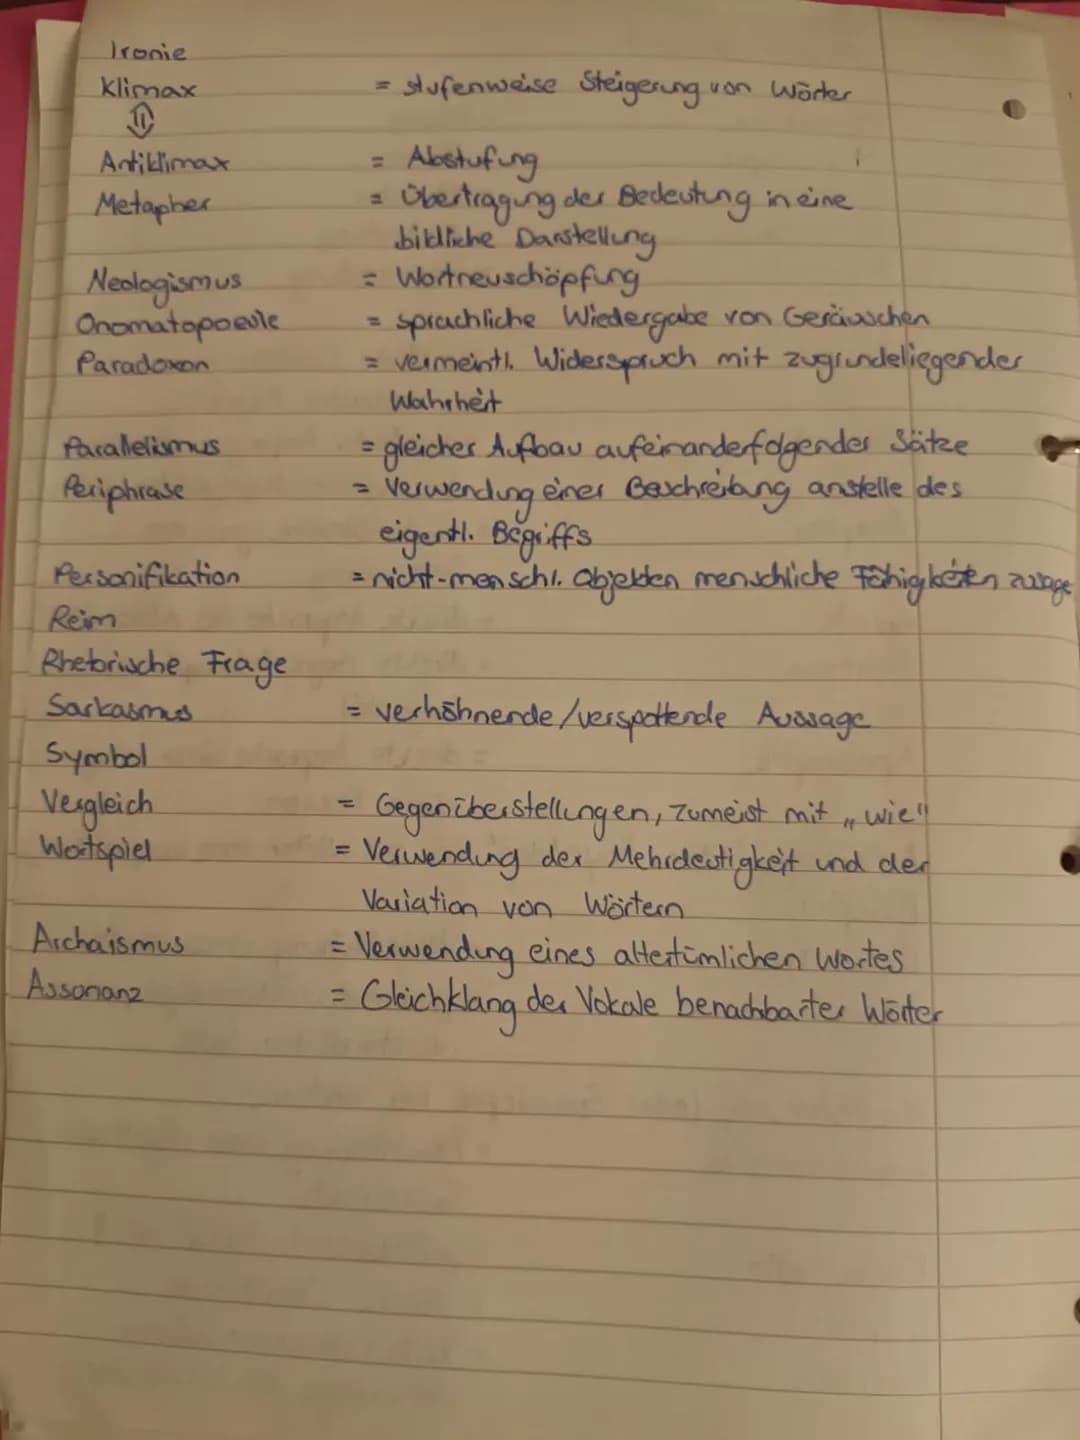 Ironie
Klimax = stufenweise Steigerung von Wörter
Antiklimax = Abstufung
Metapher = Übertragung der Bedeutung in eine
bildliche Darstellung
Neologismus = Wortneuschöpfung
Onomatopoesie = sprachliche Wiedergabe von Geräuschen
Paradoxon = vermeintl. Widerspruch mit zugrundeliegender
Wahrheit
Parallelismus = gleicher Aufbau aufeinanderfolgender Sätze
Periphrase = Verwendung einer Beschreibung anstelle des
eigentl. Begriffs
Personifikation = nicht-menschl. Objekten menschliche Fähigkeiten
Reim
Rhetorische Frage
Sarkasmus = verhöhnende/verspottende Aussage
Symbol
Vergleich = Gegenüberstellungen, zumeist mit „wie"
Wortspiel = Verwendung der Mehrdeutigkeit und der
Variation von Wörtern
Archaismus = Verwendung eines altertümlichen Wortes
Assonanz = Gleichklang der Vokale benachbarter Wörter